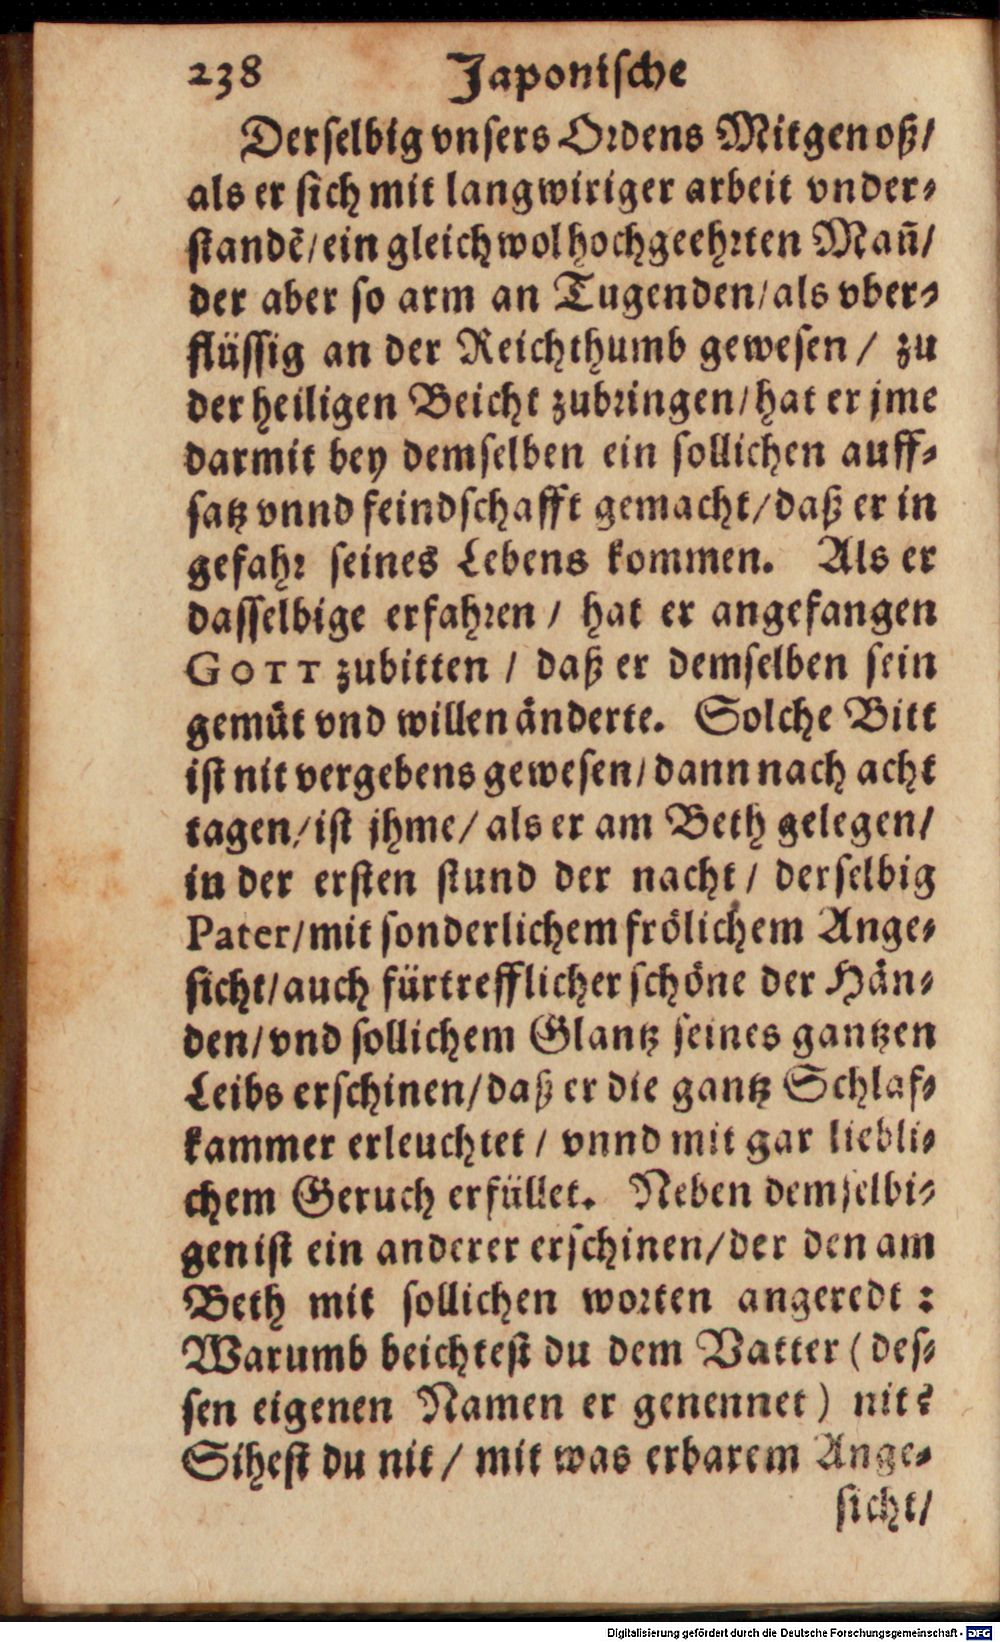 238 Japonische
Derselbig vnsers Ordens Mitgenoß/
als er sich mit langwiriger arbeit vnder-
standẽ/ein gleichwol hochgeehrten Mañ/
der aber so arm an Tugenden/als vber-
flüssig an der Reichthumb gewesen/ zu
der heiligen Beicht zubringen/hat er jme
darmit bey demselben ein sollichen auff-
satz vnnd feindschafft gemacht/daß er in
gefahr seines Lebens kommen. Als er
dasselbige erfahren/ hat er angefangen
GOTT zubitten/ daß er demselben sein
gemüt vnd willen änderte. Solche Bitt
ist nit vergebens gewesen/dann nach acht
tagen/ist jhme/als er am Beth gelegen/
in der ersten stund der nacht/ derselbig
Pater/mit sonderlichem frölichem Ange-
sicht/auch fürtrefflicher schöne der Hän-
den/vnd sollichem Glantz seines gantzen
Leibs erschinen/daß er die gantz Schlaf-
kammer erleuchtet/ vnnd mit gar liebli-
chem Geruch erfüllet. Neben demselbi-
gen ist ein anderer erschinen/der den am
Beth mit sollichen worten angeredt:
Warumb beichtest du dem Vatter (des-
sen eigenen Namen er genennet) nit?
Sihest du nit/ mit was erbarem Ange-
sicht/
Digitalisierung gefördert durch die Deutsche Forschungsgemeinschaft - DFG